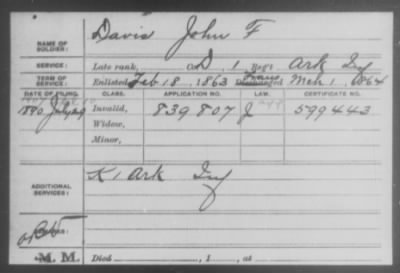 Davis John F
NAME OF SOLDIER:
SERVICE: Late rank, Co. D, 1 Reg't Ark Inf
TERM OF SERVICE: Enlisted Feb 18, 1863 Discharged Mch 1, 1864
DATE OF FILING. CLASS. APPLICATION NO. LAW. CERTIFICATE NO.
1890 July Invalid, 839807 J 599443
Widow,
Minor,
ADDITIONAL SERVICES: K 1 Ark Inf
M. M. Died , 1 , at